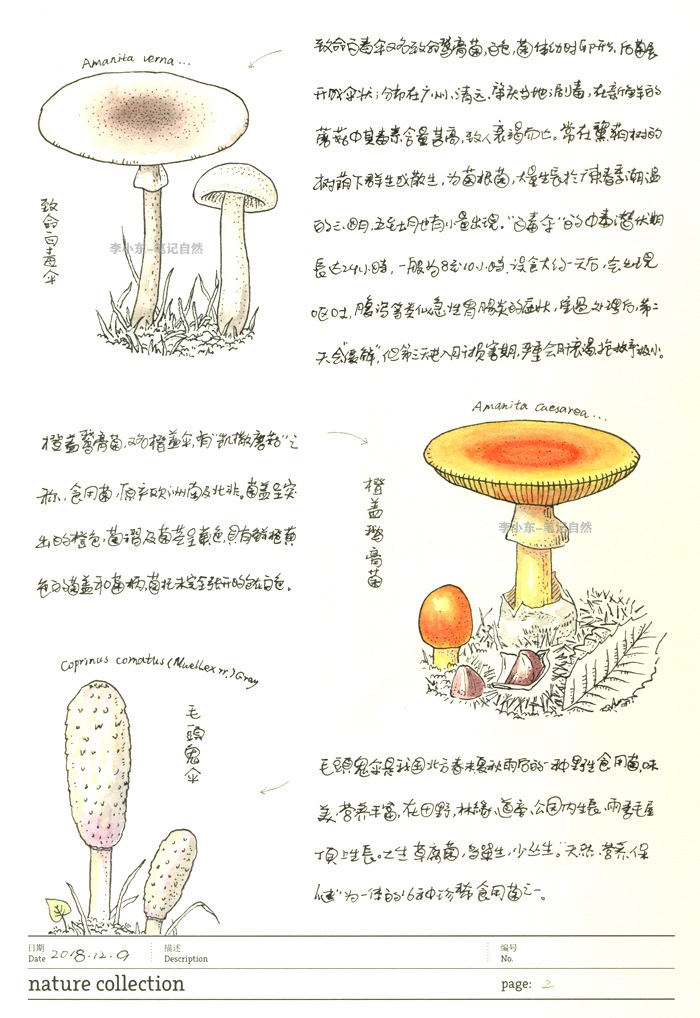 Amanita verna...
致命白毒伞
致命白毒伞又名致命鹅膏菌,白色,菌体幼时卵形,后菌盖
开成伞状;分布在广州、清远、肇庆当地;剧毒,在新鲜的
蘑菇中其毒素含量甚高,致人衰竭而亡。常在黧蒴树的
树荫下群生或散生,为菌根菌,大量生长于广東春季潮温
的三、四月,五至七月也有小量出现。“白毒伞”的中毒潜伏期
長达24小時,一般为8至10小時。误食大约一天后,会出现
呕吐,腹泻等类似急性胃腸炎的症状,重过处理后,第二
天会“缓解”,但第三天进入肝损害期,严重会肝衰竭,抢救率极小。
Amanita caesarea...
橙盖鹅膏菌
橙盖鹅膏菌,又名橙盖伞,有“凯撒蘑菇”之
称,食用菌,原产欧洲南及北非。菌盖呈突
出的橙色,菌褶及菌茎呈黄色,具有鲜橙黄
色的菌盖和菌柄,菌托未完全张开时包在白色。
Coprinus comatus (Muellex rr.) Gray
毛頭鬼伞
毛頭鬼伞是我国北方春末夏秋雨后的一种野生食用菌,味
美、营养丰富,在田野、林緣、道旁、公园内生長,雨季毛屋
頂上生長。土生草腐菌,多單生,少丛生。“天然、营养、保
健”为一体的16种珍稀食用菌之一。
李小东-笔记自然
李小东-笔记自然
日期
Date 2018.12.9
描述
Description
编号
No.
nature collection
page: 2